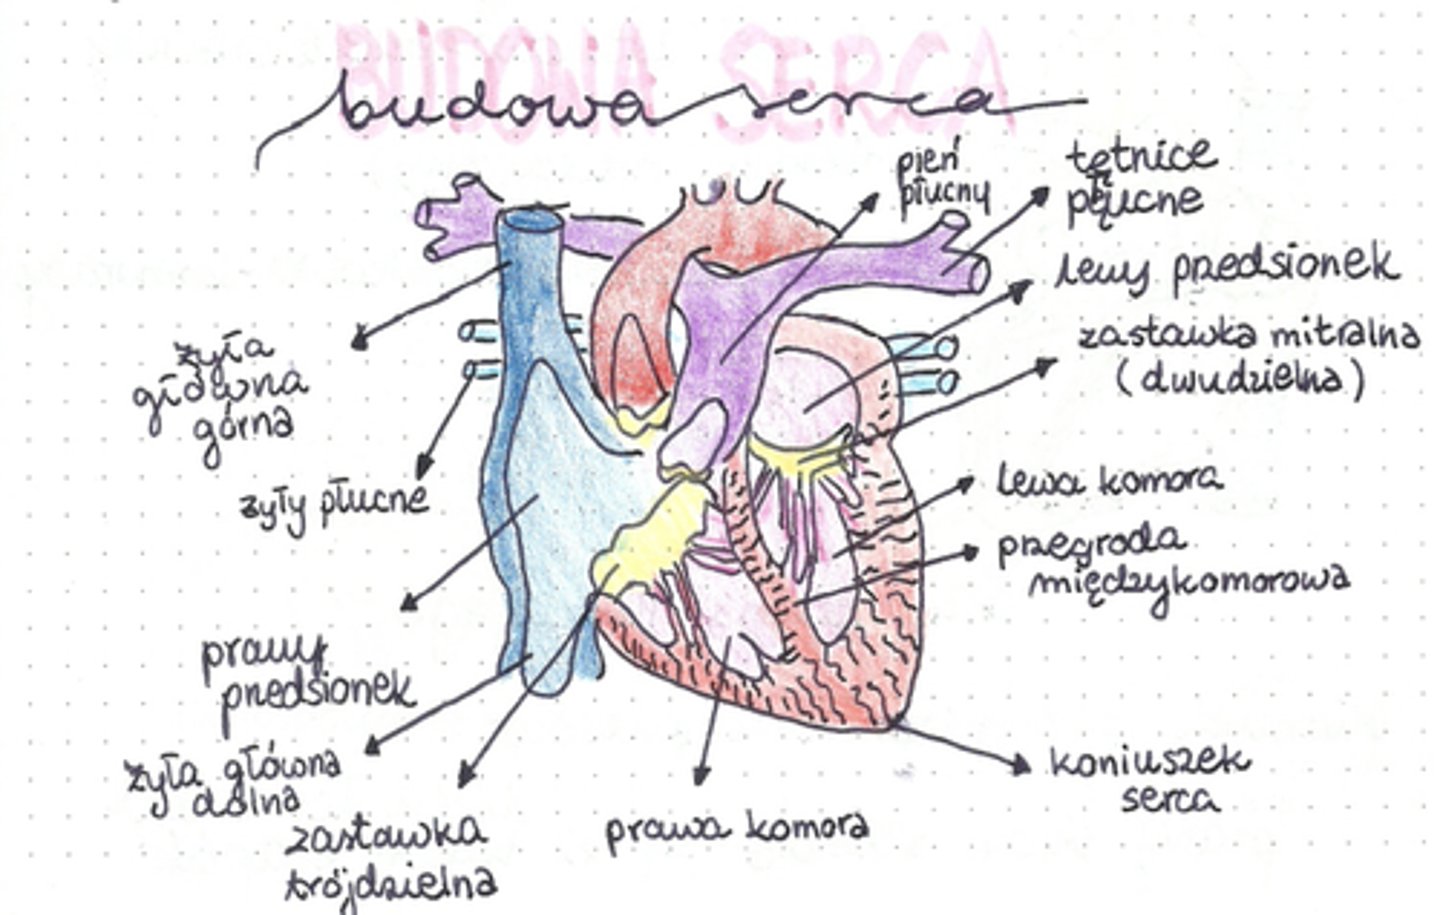 BUDOWA SERCA
budowa serca
pień
płucny
tętnice
płucne
lewy przedsionek
zastawka mitralna
(dwudzielna)
żyła
główna
górna
żyły płucne
lewa komora
przegroda
międzykomorowa
prawy
przedsionek
żyła główna
dolna
zastawka
trójdzielna
prawa komora
koniuszek
serca